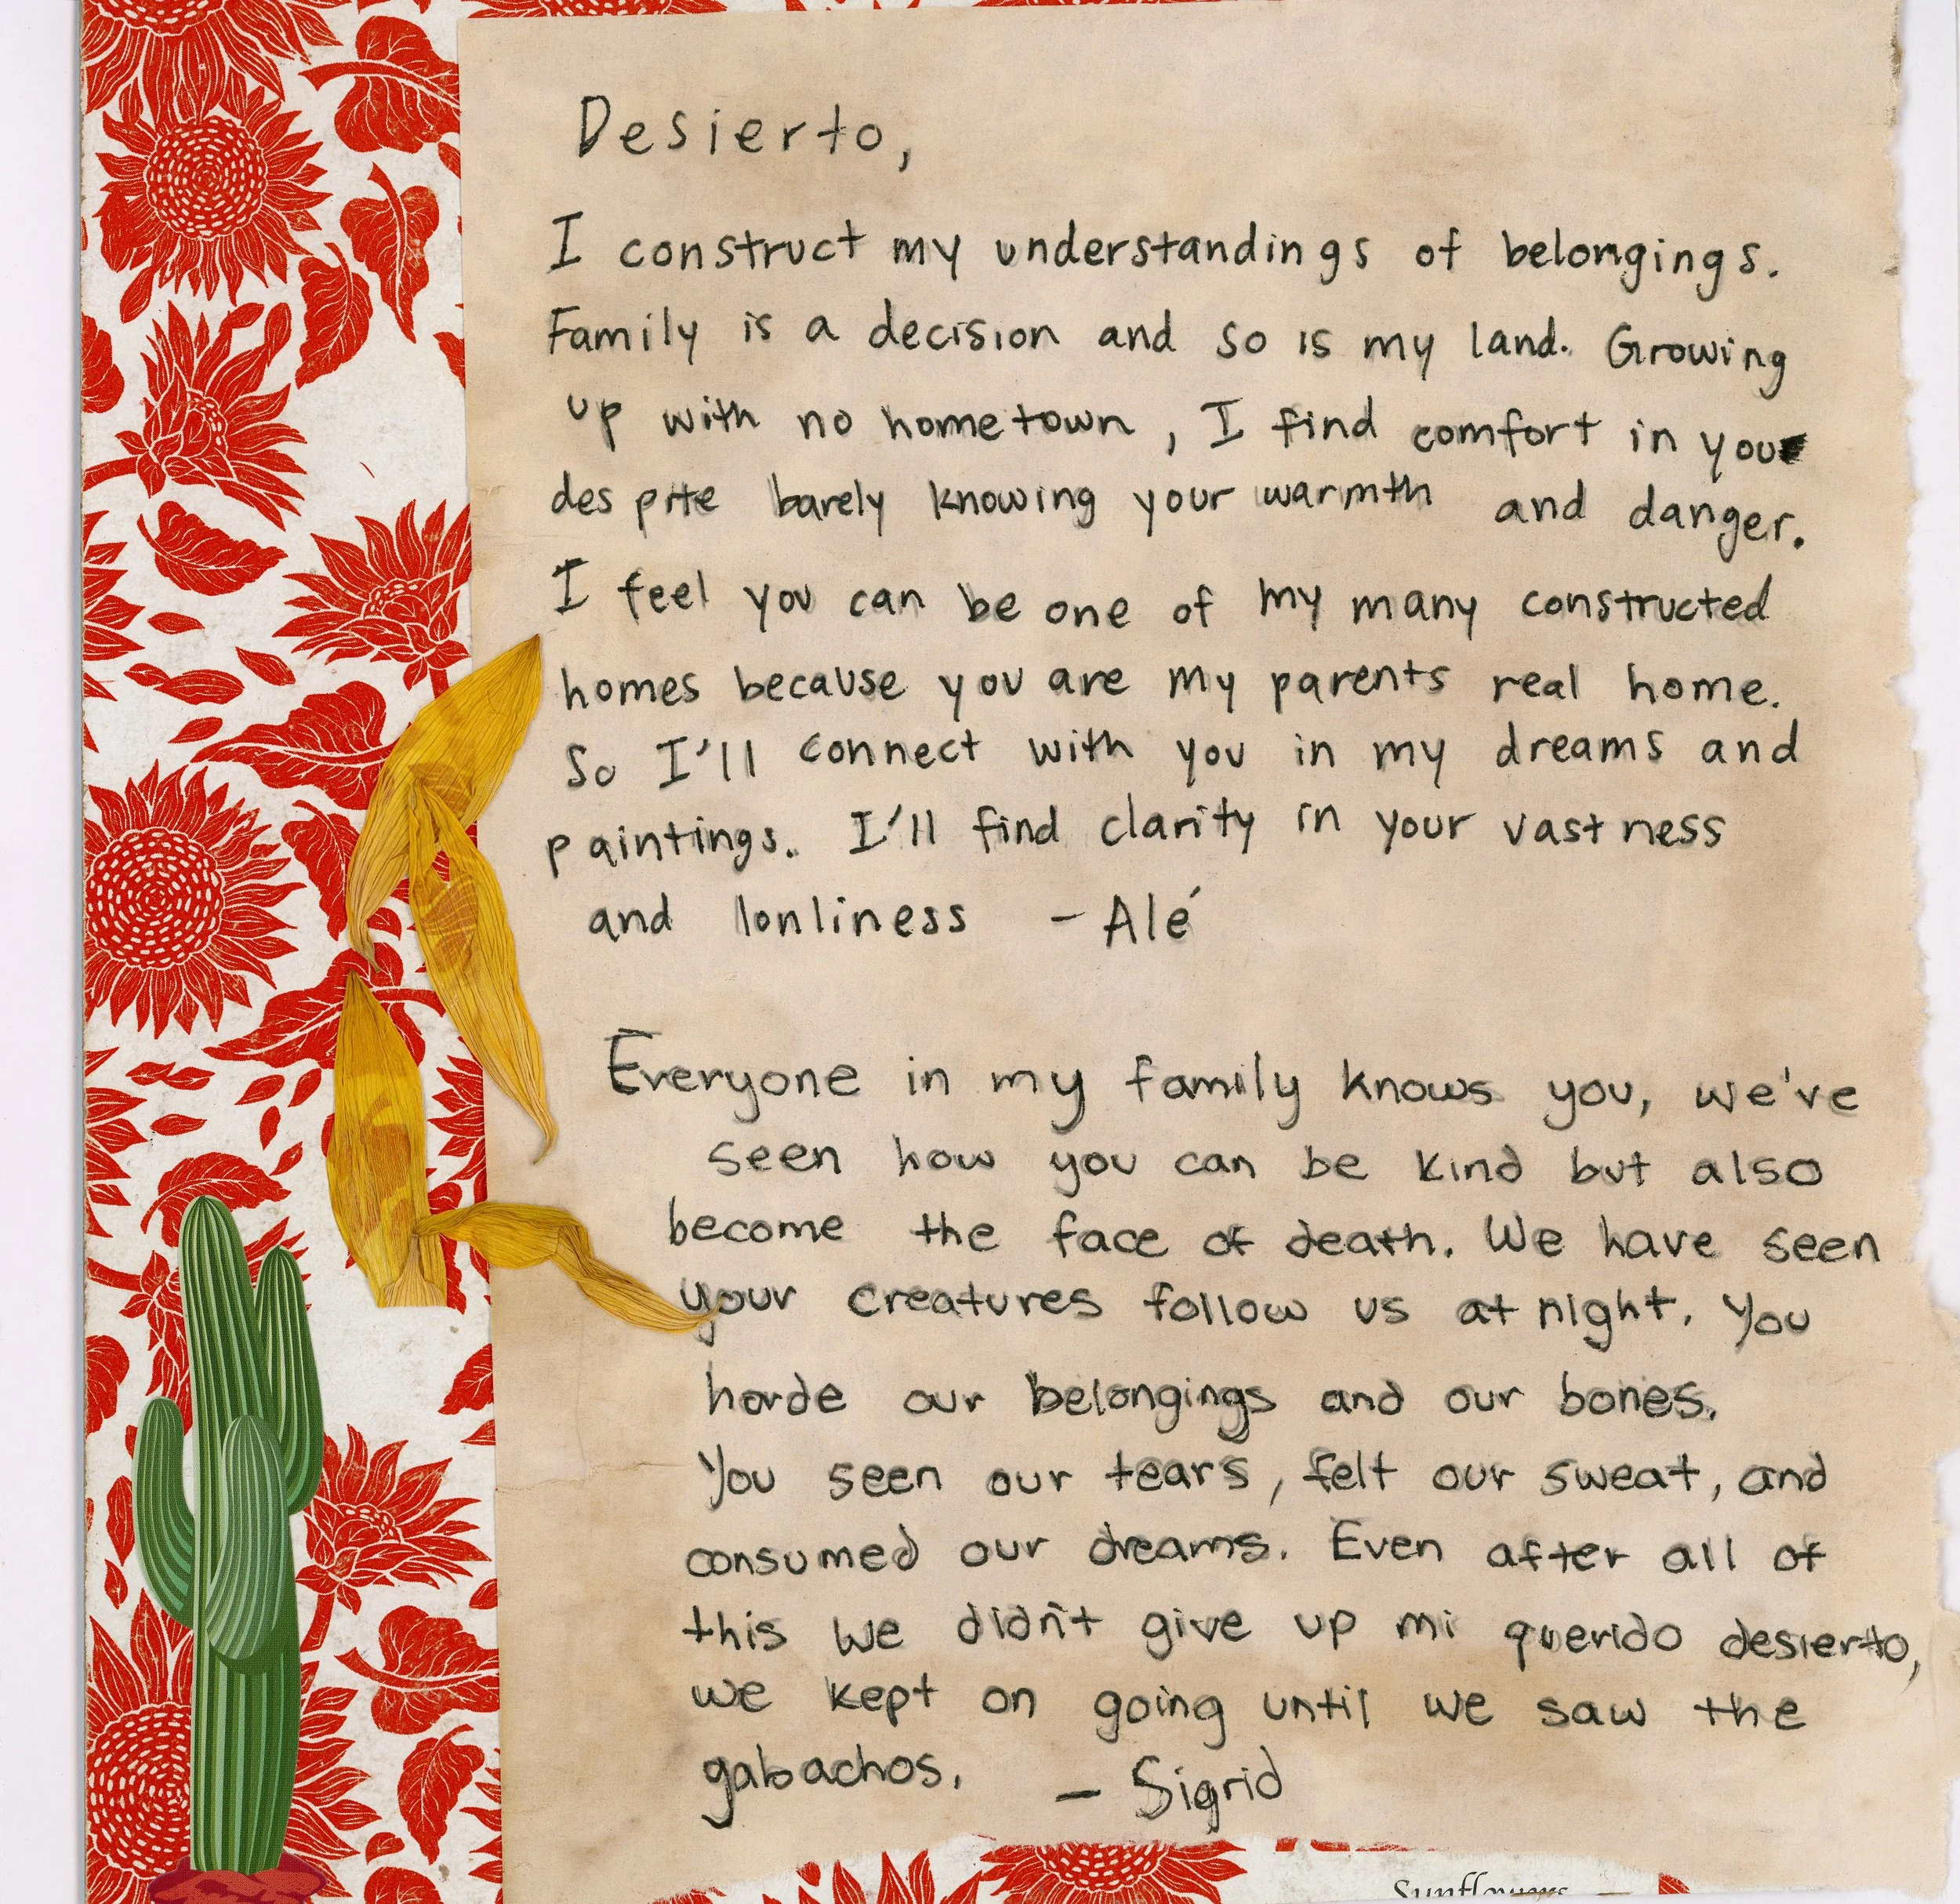 Desierto,
I construct my understandings of belongings.
Family is a decision and so is my land. Growing
up with no hometown, I find comfort in you
despite barely knowing your warmth and danger.
I feel you can be one of my many constructed
homes because you are my parents real home.
So I'll connect with you in my dreams and
paintings. I'll find clarity in your vastness
and lonliness - Alé
Everyone in my family knows you, we've
seen how you can be kind but also
become the face of death. We have seen
your creatures follow us at night. You
horde our belongings and our bones.
You seen our tears, felt our sweat, and
consumed our dreams. Even after all of
this we didn't give up mi querido desierto,
we kept on going until we saw the
gabachos. - Sigrid
Sunflowers